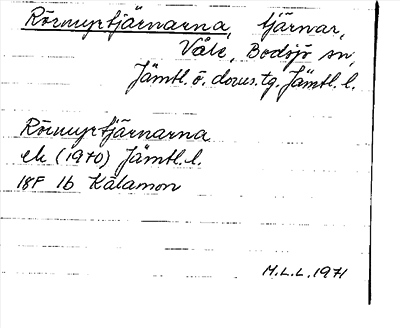 Rörmyrtjärnarna, tjärnar,
Våle, Bodsjö sn,
Jämtl. ö. doms.tg. Jämtl. l.
Rörmyrtjärnarna
ek (1970) Jämtl. l.
18F 1b Kälamon
M.L.L. 1971